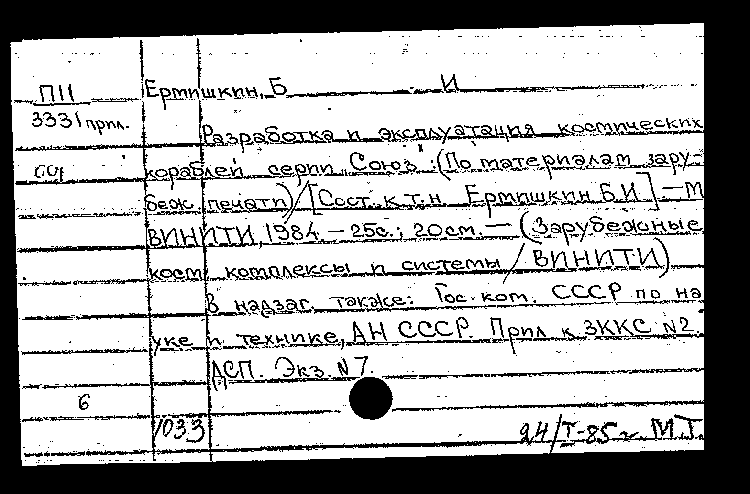 П11 Ермишкин, Б И
3331 прил. Разработка и эксплуатация космических
кораблей серии "Союз": (По материалам зару-
беж. печати) / [Сост. к.т.н. Ермишкин Б.И.] — М
ВИНИТИ, 1984. — 25с.; 20см. — (Зарубежные
косм комплексы и системы / ВИНИТИ)
В надзаг. также: Гос. ком. СССР по на
уке и технике, АН СССР. Прил к ЗККС №2.
ДСП. Экз. №7.
6
1033 24/I-85г. М.Т.